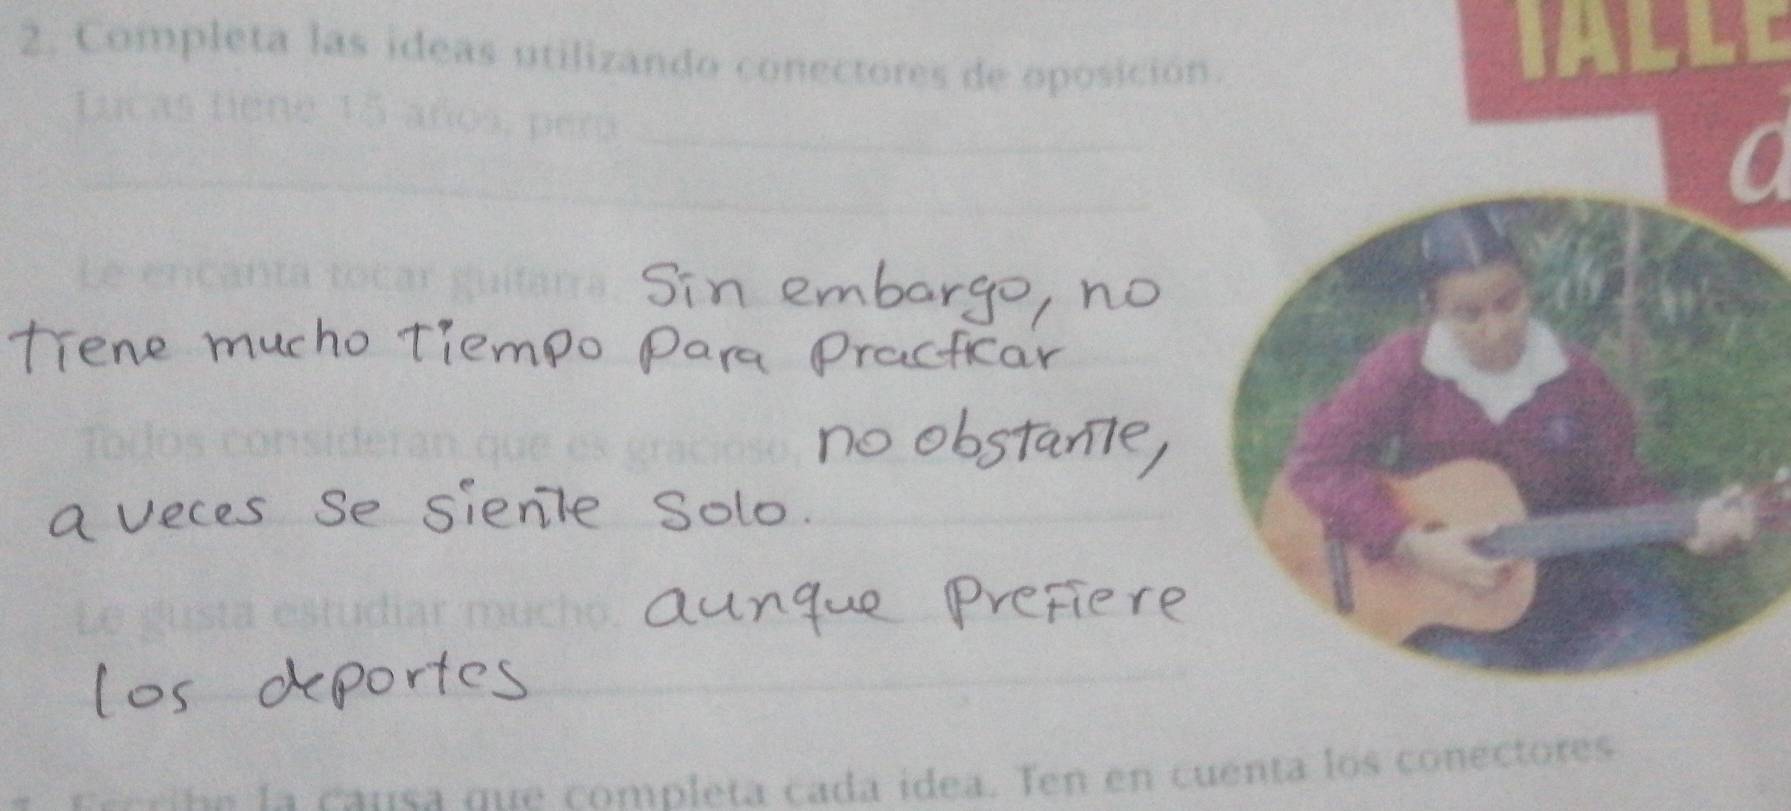 TALLE
d
2. Completa las ideas utilizando conectores de oposición.
Lucas tiene 15 años, pero
Le encanta tocar guitarra. Sin embargo, no
tiene mucho tiempo para practicar
Todos consideran que es gracioso, no obstante,
a veces se siente solo.
Le gusta estudiar mucho, aunque prefiere
los deportes
Escribe la causa que completa cada idea. Ten en cuenta los conectores